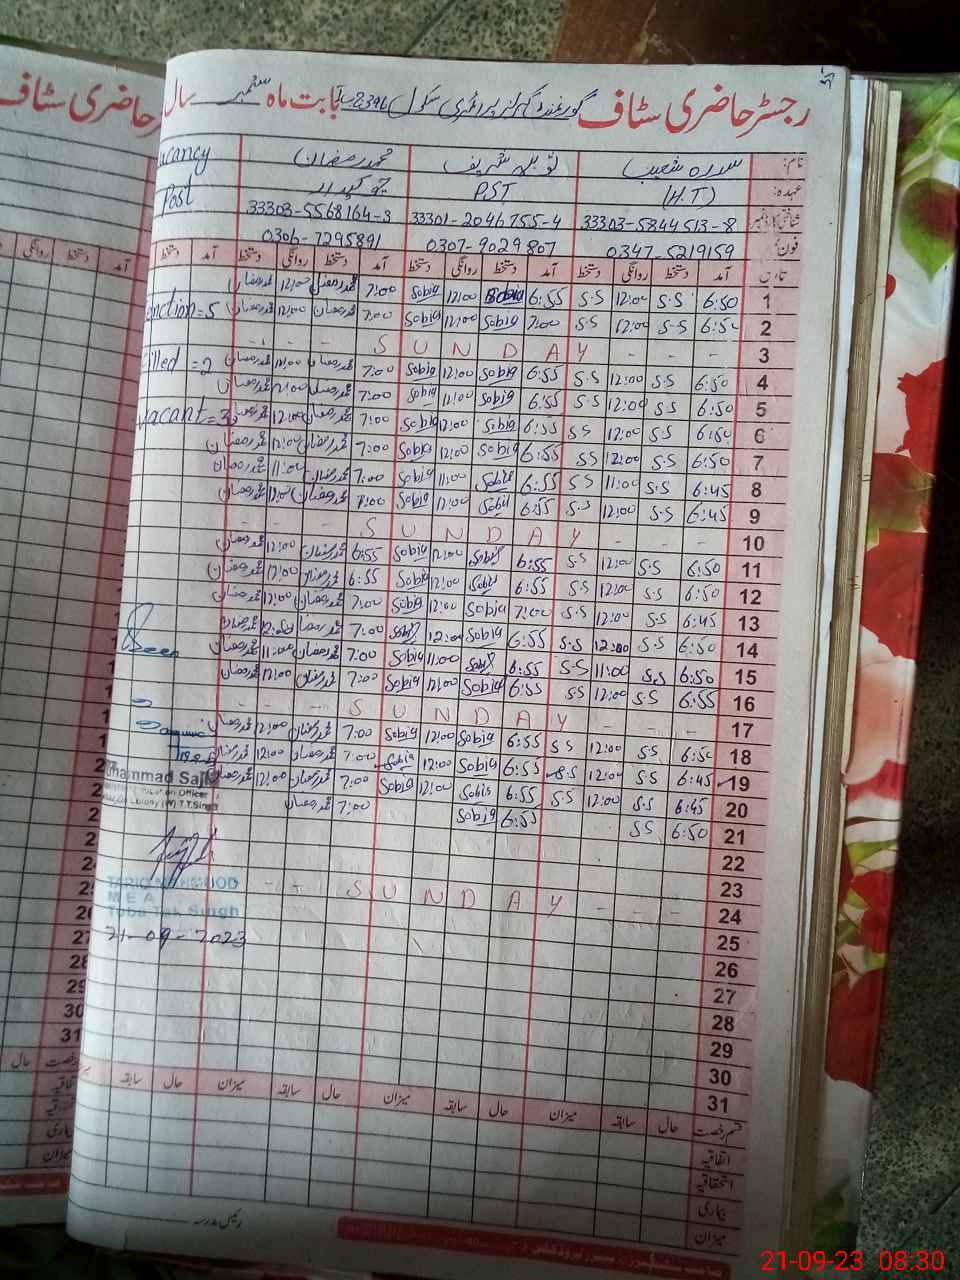 رجسٹر حاضری سٹاف گورنمنٹ گرلز پرائمری سکول 396 بابت ماہ ستمبر سال
نام: سدرہ شعیب ثوبیہ شریف محمد رمضان vacancy
عہدہ: (H.T) PST چوکیدار Post
شناختی کارڈ نمبر 33303-5844513-8 33301-2046755-4 33303-5568164-3
فون نمبر 0347-5219159 0307-9029807 0306-7295891
تاریخ آمد دستخط روانگی دستخط آمد دستخط روانگی دستخط آمد دستخط روانگی دستخط آمد دستخط
1 6:50 S.S 12:00 S.S 6:55 Sobia 12:00 Sobia 7:00 محمد رمضان 12:00 محمد رمضان
2 6:50 S.S 12:00 S.S 7:00 Sobia 12:00 Sobia 7:00 محمد رمضان 12:00 محمد رمضان
3 - - - SUNDAY - - -
4 6:50 S.S 12:00 S.S 6:55 Sobia 12:00 Sobia 7:00 محمد رمضان 12:00 محمد رمضان
filled = 2
5 6:50 S.S 12:00 S.S 6:55 Sobia 12:00 Sobia 7:00 محمد رمضان 12:00 محمد رمضان
vacant = 3
6 6:50 S.S 12:00 S.S 6:55 Sobia 12:00 Sobia 7:00 محمد رمضان 12:00 محمد رمضان
7 6:50 S.S 12:00 S.S 6:55 Sobia 12:00 Sobia 7:00 محمد رمضان 12:00 محمد رمضان
8 6:45 S.S 11:00 S.S 6:55 Sobia 11:00 Sobia 7:00 محمد رمضان 11:00 محمد رمضان
9 6:45 S.S 12:00 S.S 6:55 Sobia 12:00 Sobia 7:00 محمد رمضان 12:00 محمد رمضان
10 - - - SUNDAY - - -
11 6:50 S.S 12:00 S.S 6:55 Sobia 12:00 Sobia 6:55 محمد رمضان 12:00 محمد رمضان
12 6:50 S.S 12:00 S.S 6:55 Sobia 12:00 Sobia 6:55 محمد رمضان 12:00 محمد رمضان
13 6:45 S.S 12:00 S.S 7:00 Sobia 12:00 Sobia 7:00 محمد رمضان 12:00 محمد رمضان
14 6:50 S.S 12:00 S.S 6:55 Sobia 12:00 Sobia 7:00 محمد رمضان 12:00 محمد رمضان
Seen
15 6:50 S.S 11:00 S.S 6:55 Sobia 11:00 Sobia 7:00 محمد رمضان 11:00 محمد رمضان
16 6:55 S.S 12:00 S.S 6:55 Sobia 12:00 Sobia 7:00 محمد رمضان 12:00 محمد رمضان
17 - SUNDAY - - -
18 6:50 S.S 12:00 S.S 6:55 Sobia 12:00 Sobia 7:00 محمد رمضان 12:00 محمد رمضان
19 6:45 S.S 12:00 S.S 6:55 Sobia 12:00 Sobia 7:00 محمد رمضان 12:00 محمد رمضان
20 6:45 S.S 12:00 S.S 6:55 Sobia 12:00 Sobia 7:00 محمد رمضان 12:00 محمد رمضان
21 6:50 S.S 6:55 Sobia 7:00 محمد رمضان
22
23
24 - - - SUNDAY - - -
25
26
27
28
29
30
31
TARIQ MAHMOOD
MEA
Toba Tek Singh
21-09-2023
قسم رخصت حال سابقہ میزان حال سابقہ میزان حال سابقہ میزان حال سابقہ
اتفاقیہ
استحقاقیہ
بیماری
میزان
رئیس مدرسہ
21-09-23 08:30